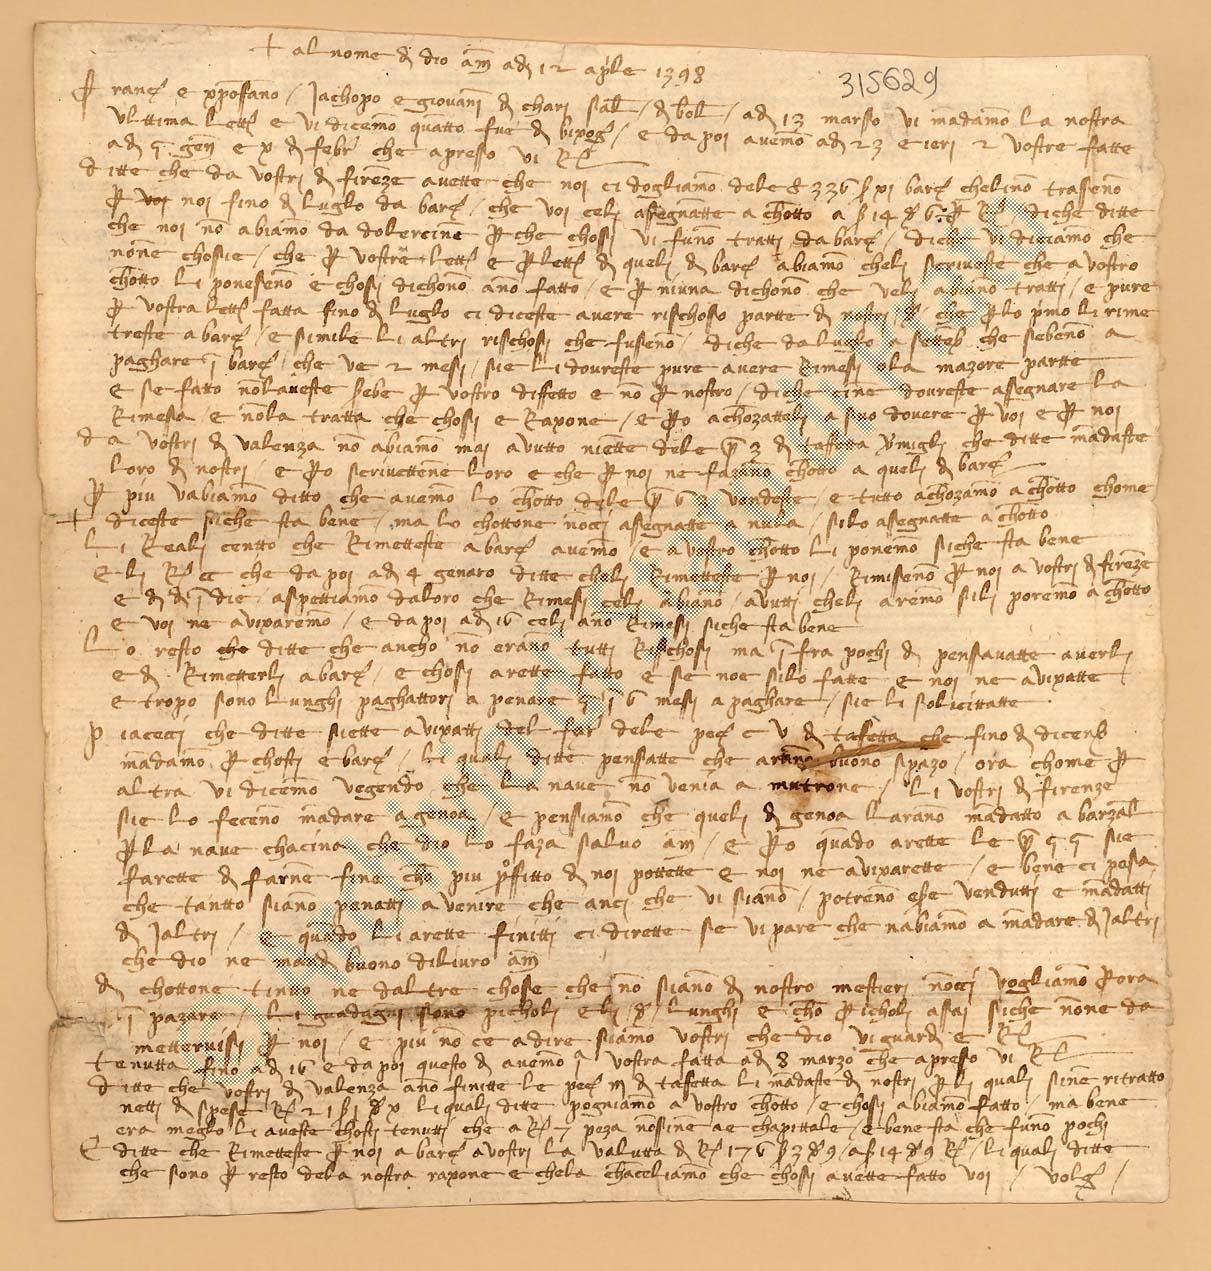 + al nome di dio am adi 12 aprile 1398
315629
Franc e xpofano / Jachopo e giovani di chari sal / di bol / adi 13 marsso vi madamo la nostra
ulttima lett e vi dicemo quatto fue di / e da poi avemo adi 23 e ieri 2 vostre fatte
adi 5 gen e x di febr che apresso vi R
ditte che da vostri di fireze avette che noi ci dogliamo dele 336 xi barc chelino trasseno
p voi noi fino di luglo da barc / che voi celi assegnatte a chotto a 14 6 p diche ditte
che noi no abiamo da dolercine p che chossi vi funo tratti da barc / diche vi diciamo che
none chossie / che p vostre lett e p lett di queli di barc abiamo cheli scrivete che a vostro
chotto li poneseno e chossi dichono ano fatto / e p niuna dichono che veli abiano tratti / e pure
p vostra lett fatta fino di luglo ci diceste avere rischosso partte di nostri / che plo pmo li rime
treste a barc / e simile li altri rischossi che fusseno / diche da luglo a setteb che sebeno a
paghare i barc / che ve 2 mesi / sie li doureste pure avere rimessi o la mazore partte
e se fatto nolaveste sebe p vostro diffetto e no p nostro / diche cine doureste asegnare la
Rimessa / e nola tratta che chossi e Raxone / e po achozatteli a suo dovere p voi e p noi
da vostri di valenza no abiamo mai avutto niette dele p 3 di taffetta vmigli che ditte madaste
loro di nostri / e po scrivettene loro e che p noi ne faziamo chotto a queli di barc
p piu vabiamo ditto che avemo lo chotto dele p 6 vendeste / e tutto achozamo a chotto chome
+ diceste siche sta bene / ma lo chottone nocci assegnatte a nula / silo assegnatte a chotto
Li Reali centto che Rimetteste a barc avemo / e a vostro chotto li ponemo siche sta bene
E li R cc che da poi adi 4 genaro ditte cheli Rimetteste p noi / Rimisseno p noi a vostri di fireze
e di di i die aspettiamo da loro che Rimessi celi abiano / avutti cheli aremo sili poremo a chotto
e voi ne avixaremo / e da poi adi 16 celi ano Rimessi siche sta bene
Lo resto che ditte che ancho no erano tutti Risschossi ma i fra pochi di pensavatte averli
e di Rimetterli a barc / e chossi arette fatto e se noe silo fatte e noi ne avixatte
e tropo sono lunghi paghattori a penare 5 i 6 mesi a paghare / sie li solicittatte
piaceci che ditte siette avixatti del far dele pec c v di tafetta che fino di diceb
madamo p chosti e barc / li quali ditte pensatte che arano buono spazo / ora chome p
altra vi dicemo vegendo che la nave no venia a mutrone / li vostri di firenze
sie lo feceno madare a genoa / e pensiamo che queli di genoa larano madatto a barzal
p la nave chacina che dio lo faza salvo am / e po quado arette le p 55 sie
farette di farne fine cho piu pffitto di noi pottette e noi ne avixarette / e bene ci pesa
che tantto siano penatti a venire che anci che vi siano / potreno ese vendutti e madatti
di Jaltri / e quado li arette finitti ci dirette se vi pare che nabiamo a madare di Jaltri
che dio ne mandi buono dilivro am
di chottone tintto ne daltre chosse che no siano di nostro mestieri nocci vogliamo p ora
i pazare / li guadagni sono picholi e li lunghi e cho picholi assai siche none da
mettervisi p noi / e piu no ce a dire siamo vostri che dio vi guardi e R
tenutta fino adi 16 e da poi questo di avemo i vostra fatta adi 8 marzo che apresso vi R
ditte che vostri di valenza ano finitte le pec m di tafetta li madaste di nostri p li quali sine ritratto
netti di spese R 21 1 x li quali ditte pogniamo a vostro chotto / e chossi abiamo fatto / ma bene
era meglo li aveste chosti tenutti che a R 7 peza nosine ae chapittale / e bene sta che funo pochi
E ditte che Rimetteste p noi a barc a vostri la valutta di R 176 3 9 / a 14 9 R / li quali ditte
che sono p resto dela nostra raxone e chela chaceliamo che chossi avette fatto voi / volg /